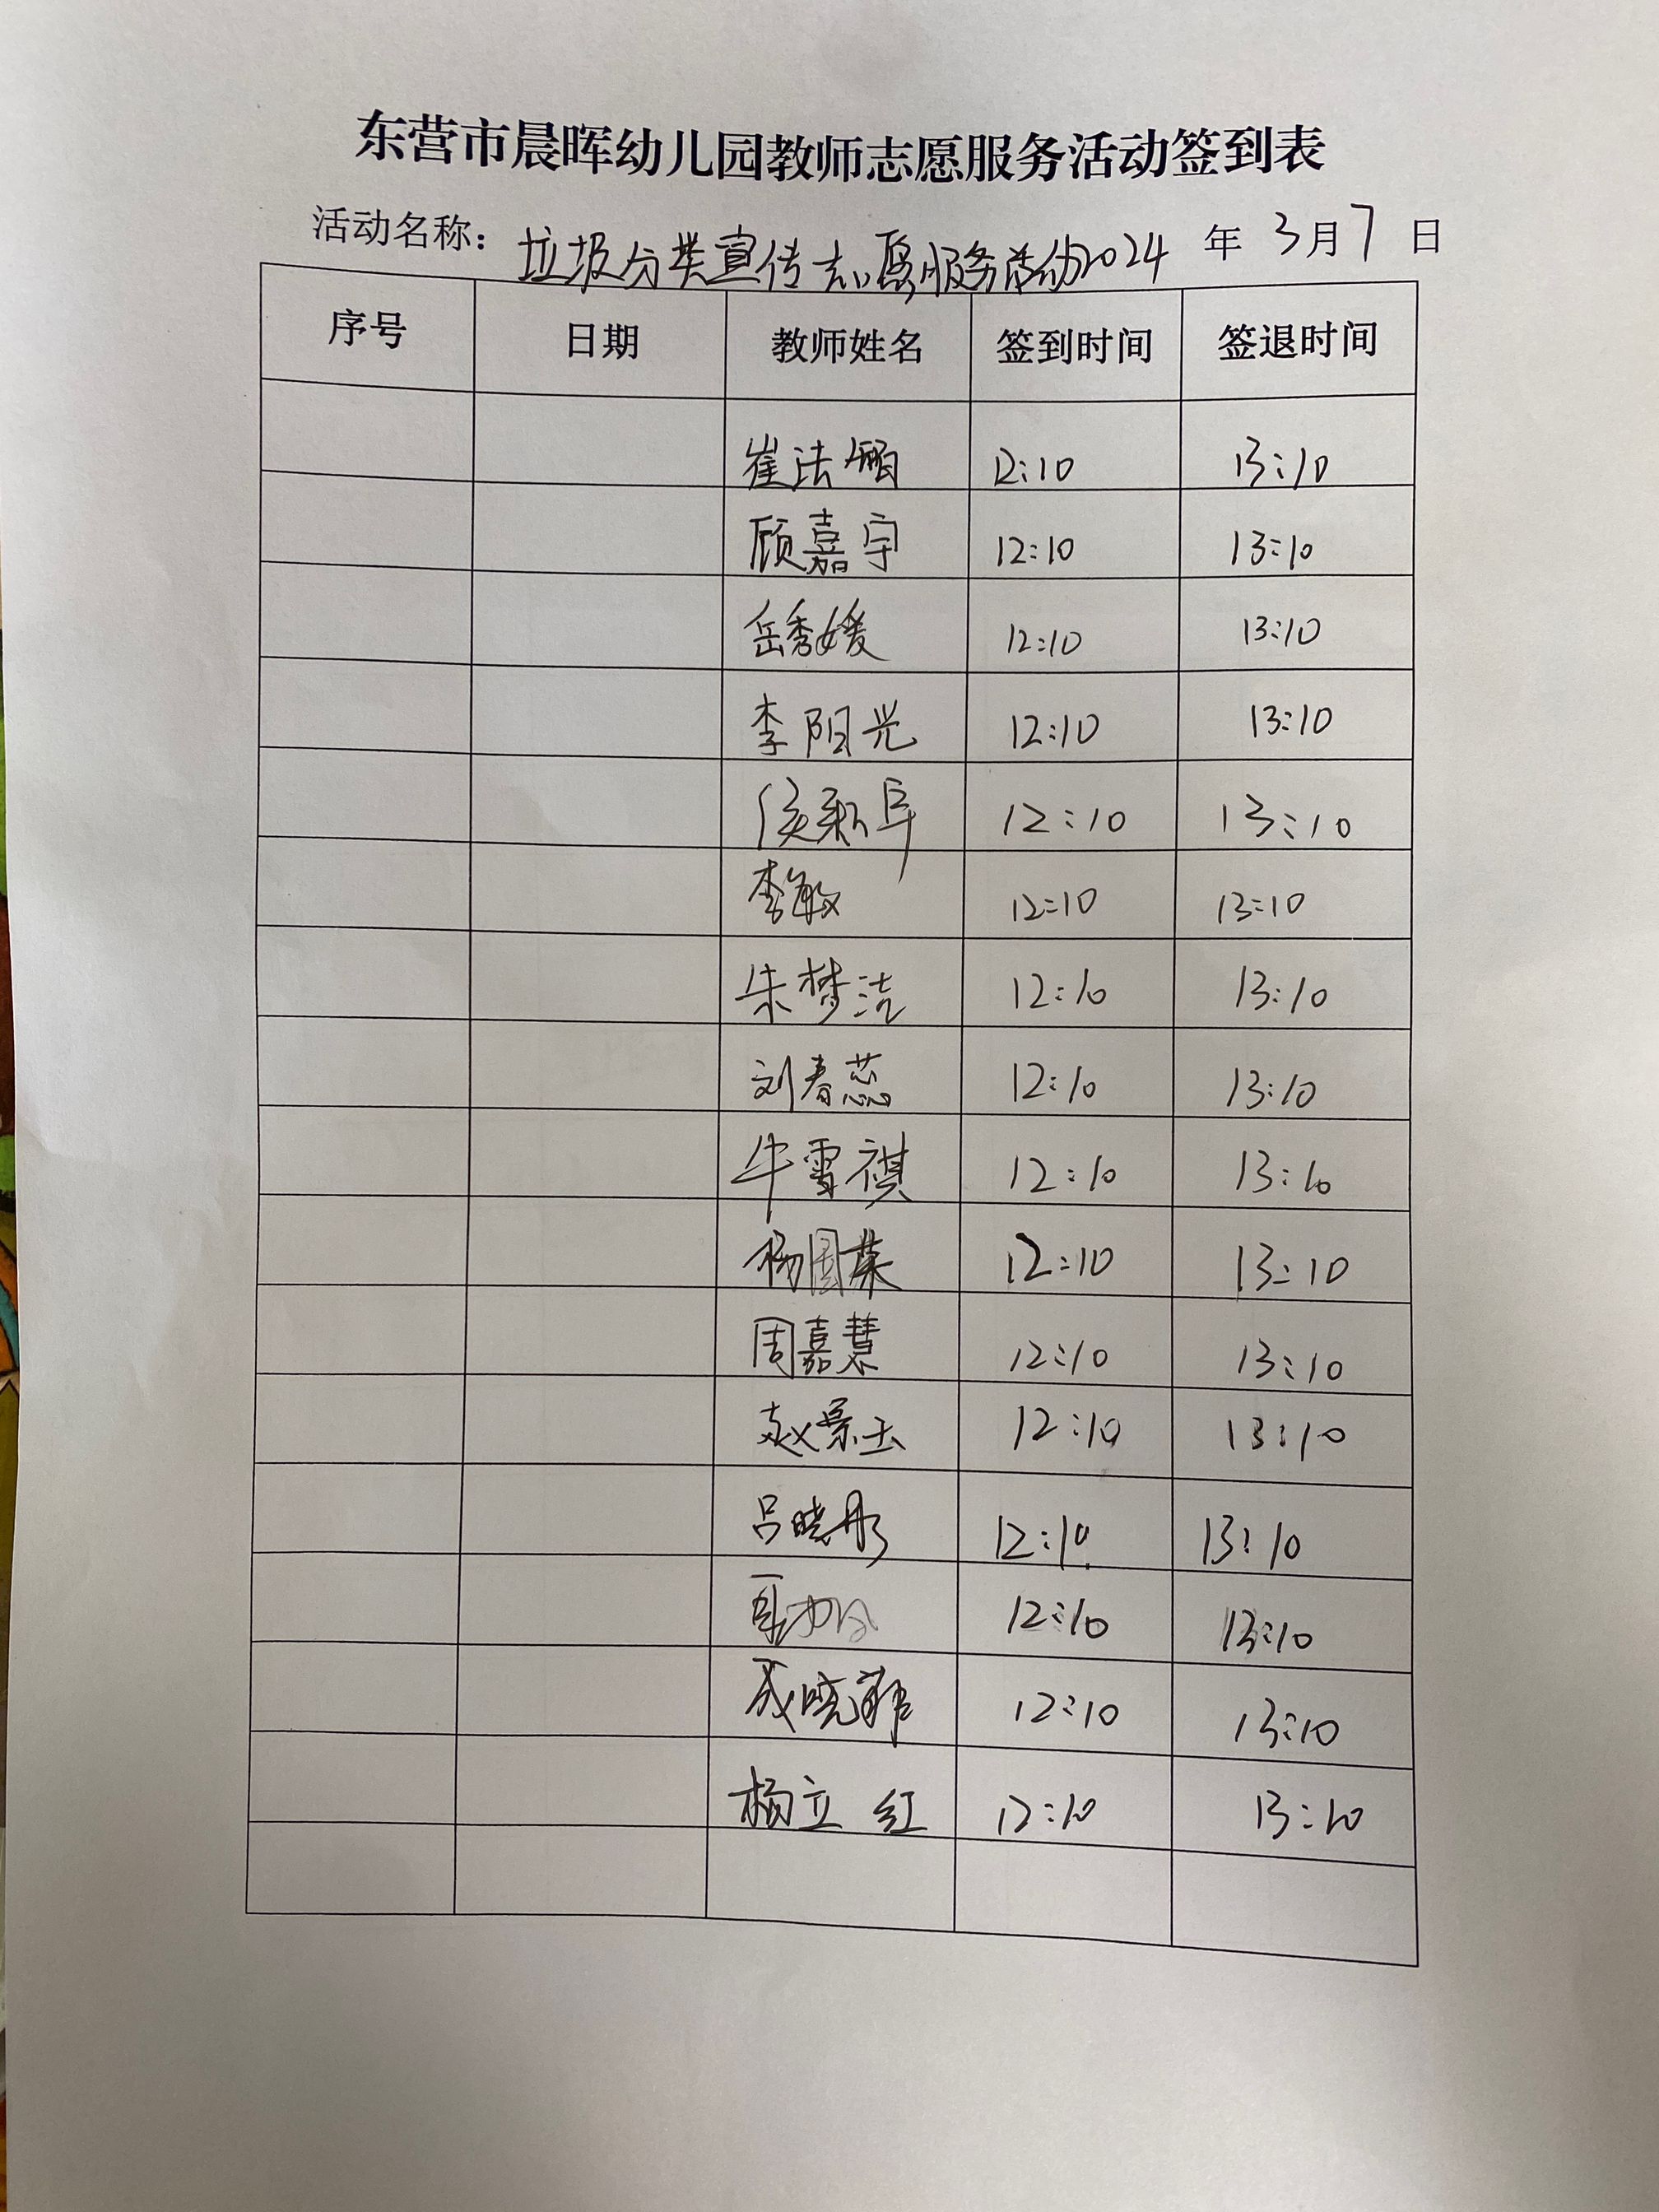 东营市晨晖幼儿园教师志愿服务活动签到表
活动名称：垃圾分类宣传志愿服务活动2024 年 3月7日
序号 日期 教师姓名 签到时间 签退时间
崔洁 12:10 13:10
顾嘉宇 12:10 13:10
岳秀媛 12:10 13:10
李阳光 12:10 13:10
侯新阜 12:10 13:10
李敏 12:10 13:10
朱梦洁 12:10 13:10
刘春蕊 12:10 13:10
牛雪祺 12:10 13:10
杨国英 12:10 13:10
周嘉慧 12:10 13:10
赵景玉 12:10 13:10
吕晓彤 12:10 13:10
12:10 13:10
成晓菲 12:10 13:10
杨立红 12:10 13:10